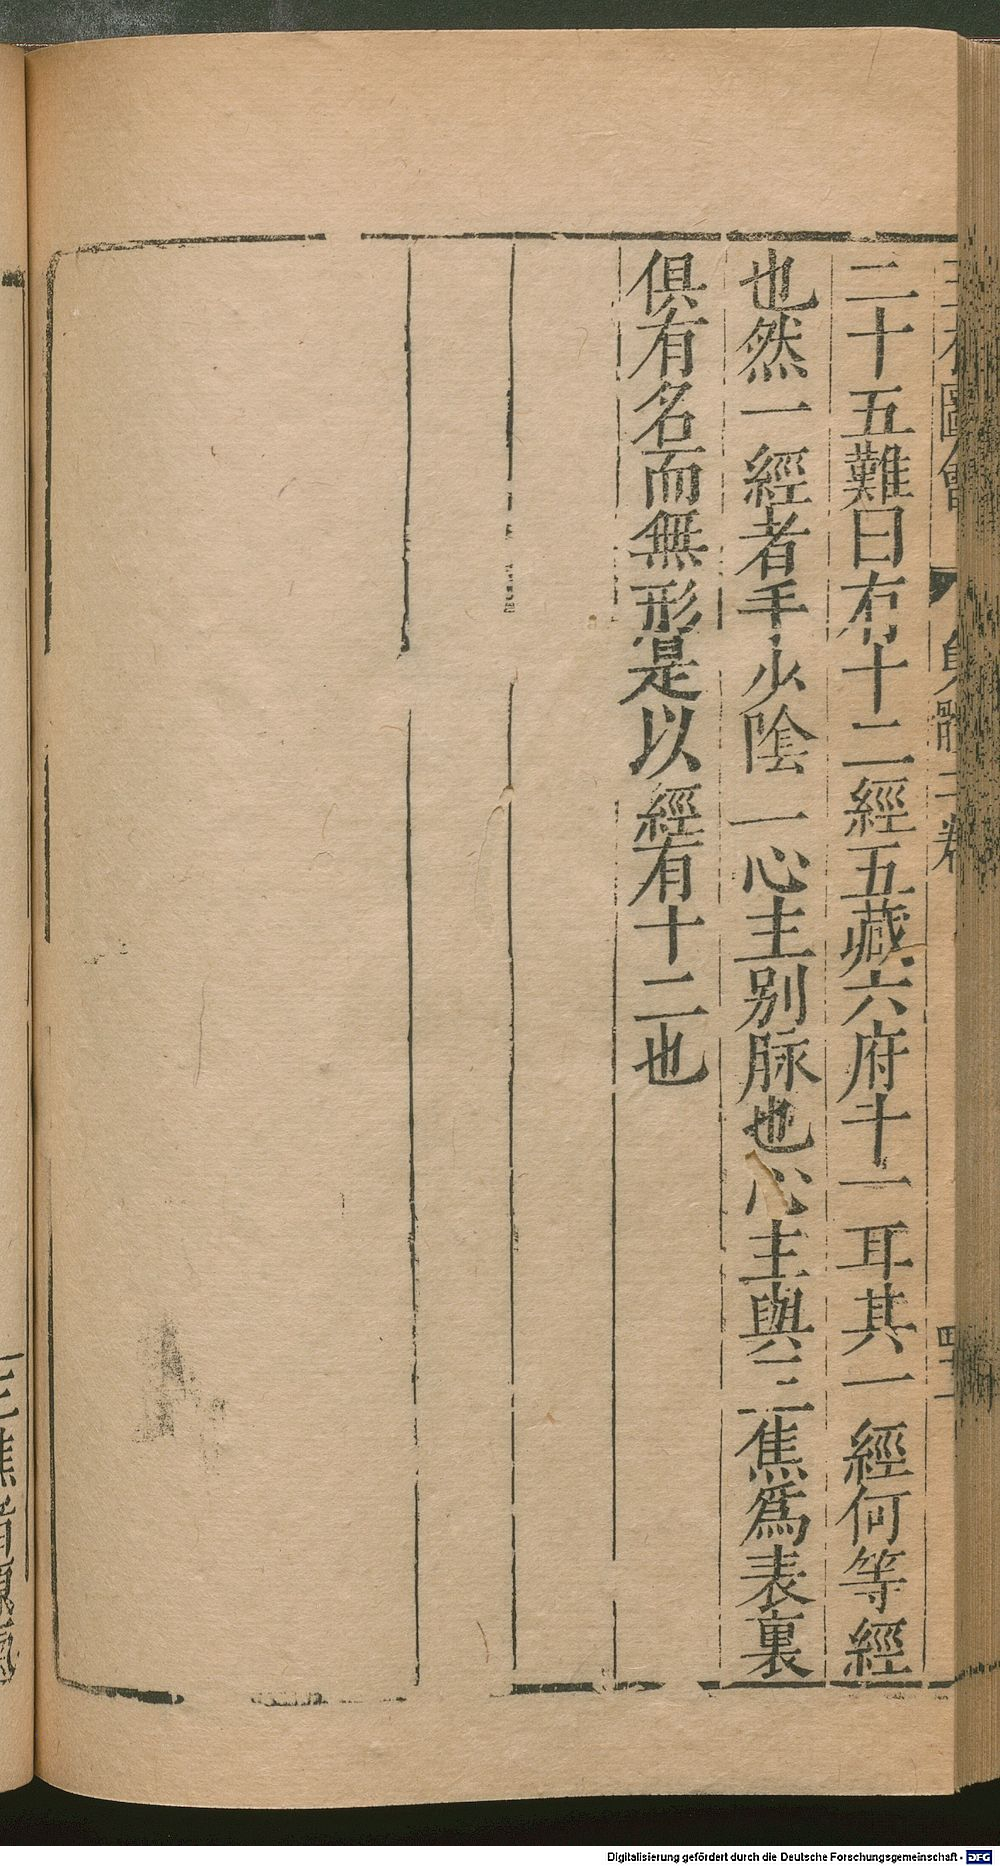 三才圖會 身體二卷
二十五難曰有十二經五藏六府十一耳其一經何等經
也然一經者手少陰一心主别脉也心主與三焦爲表裏
俱有名而無形是以經有十二也
三焦者
Digitalisierung gefördert durch die Deutsche Forschungsgemeinschaft - DFG